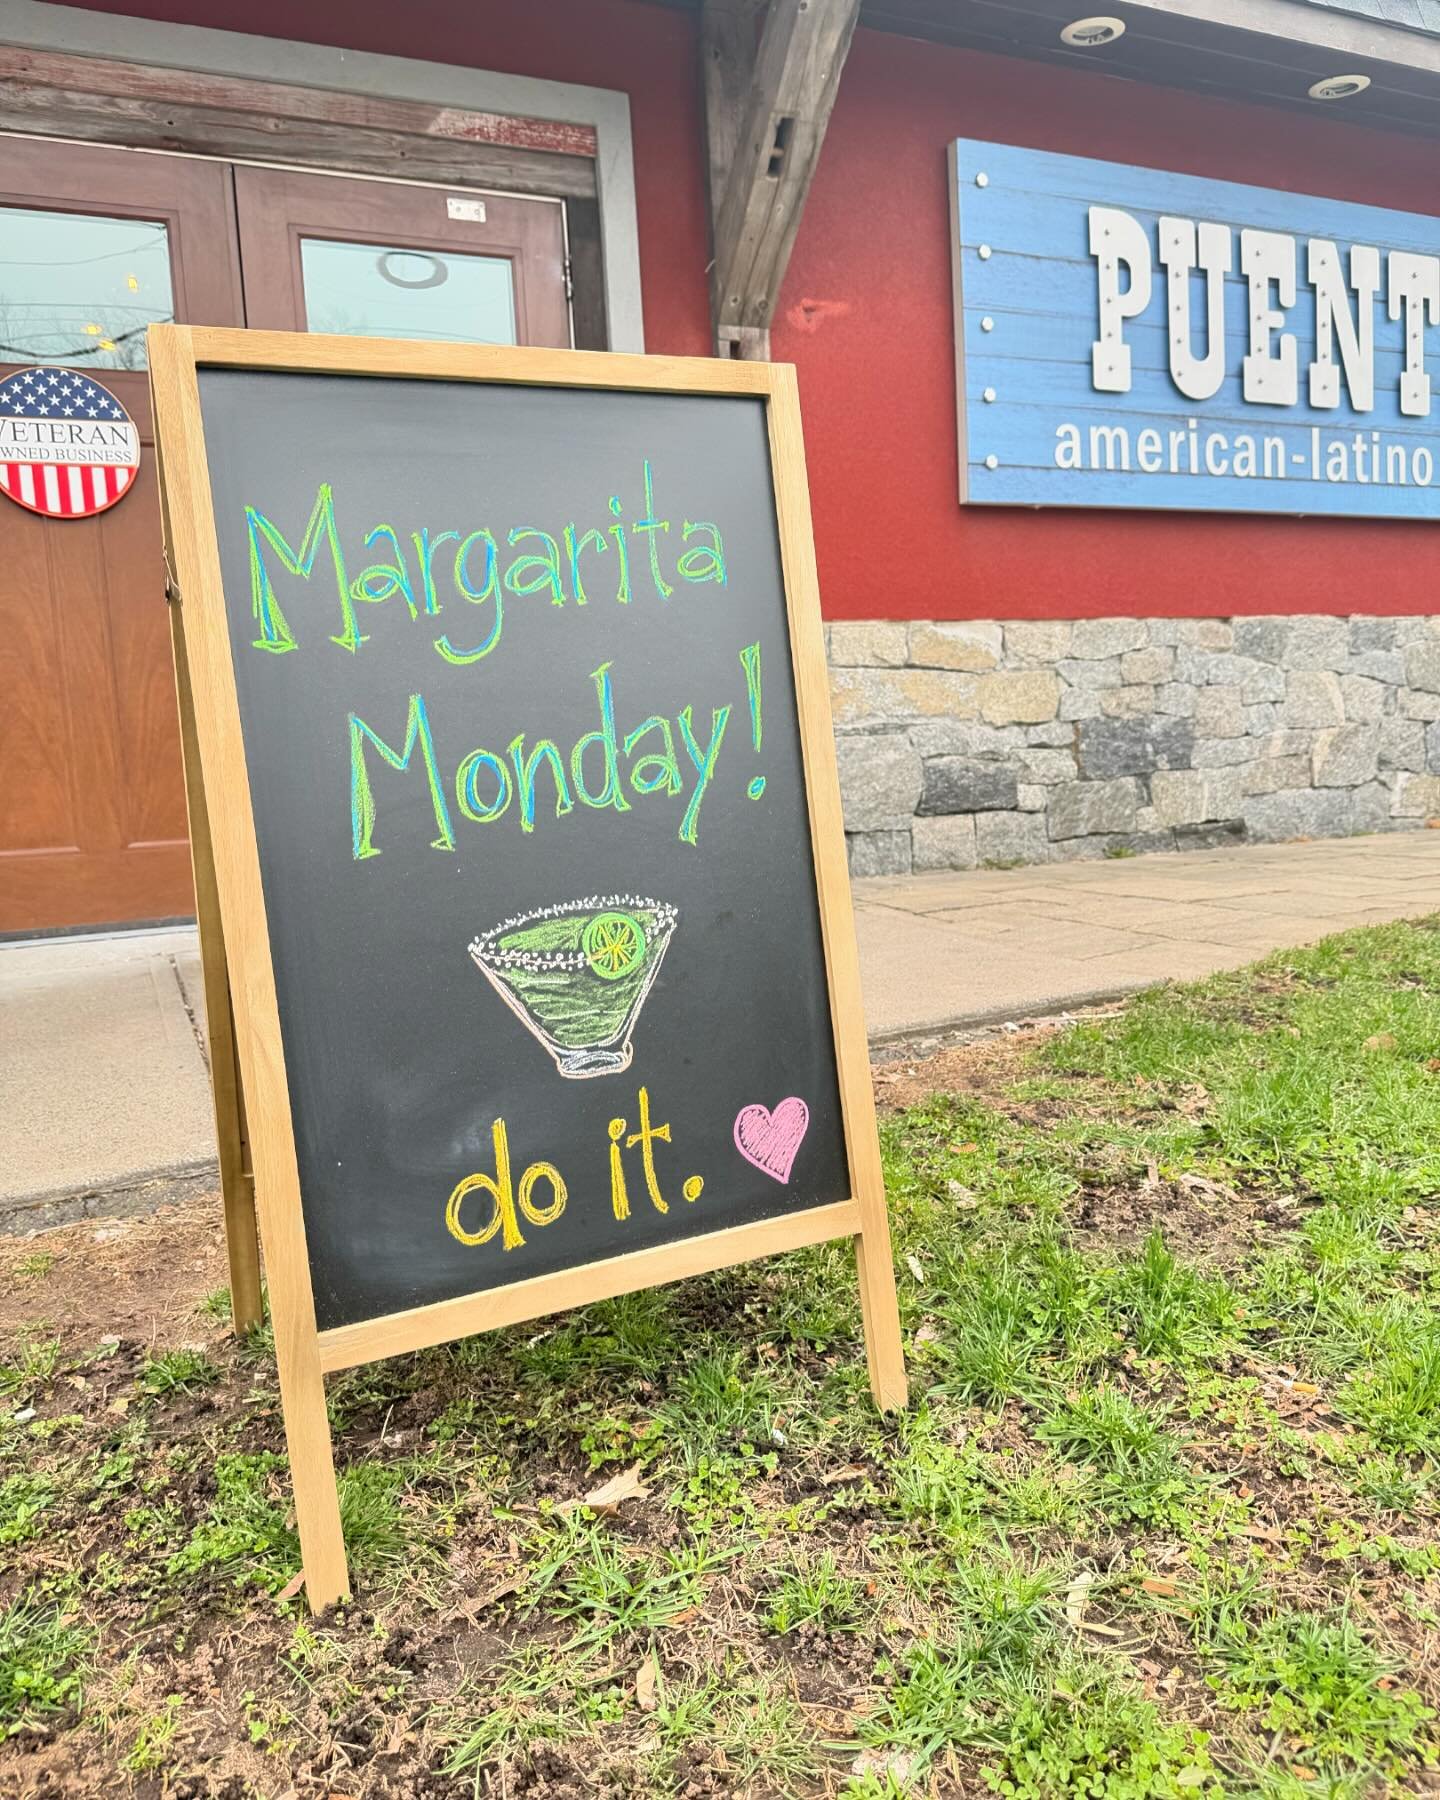 VETERAN
OWNED BUSINESS
PUENT
american-latino
Margarita
Monday!
do it.